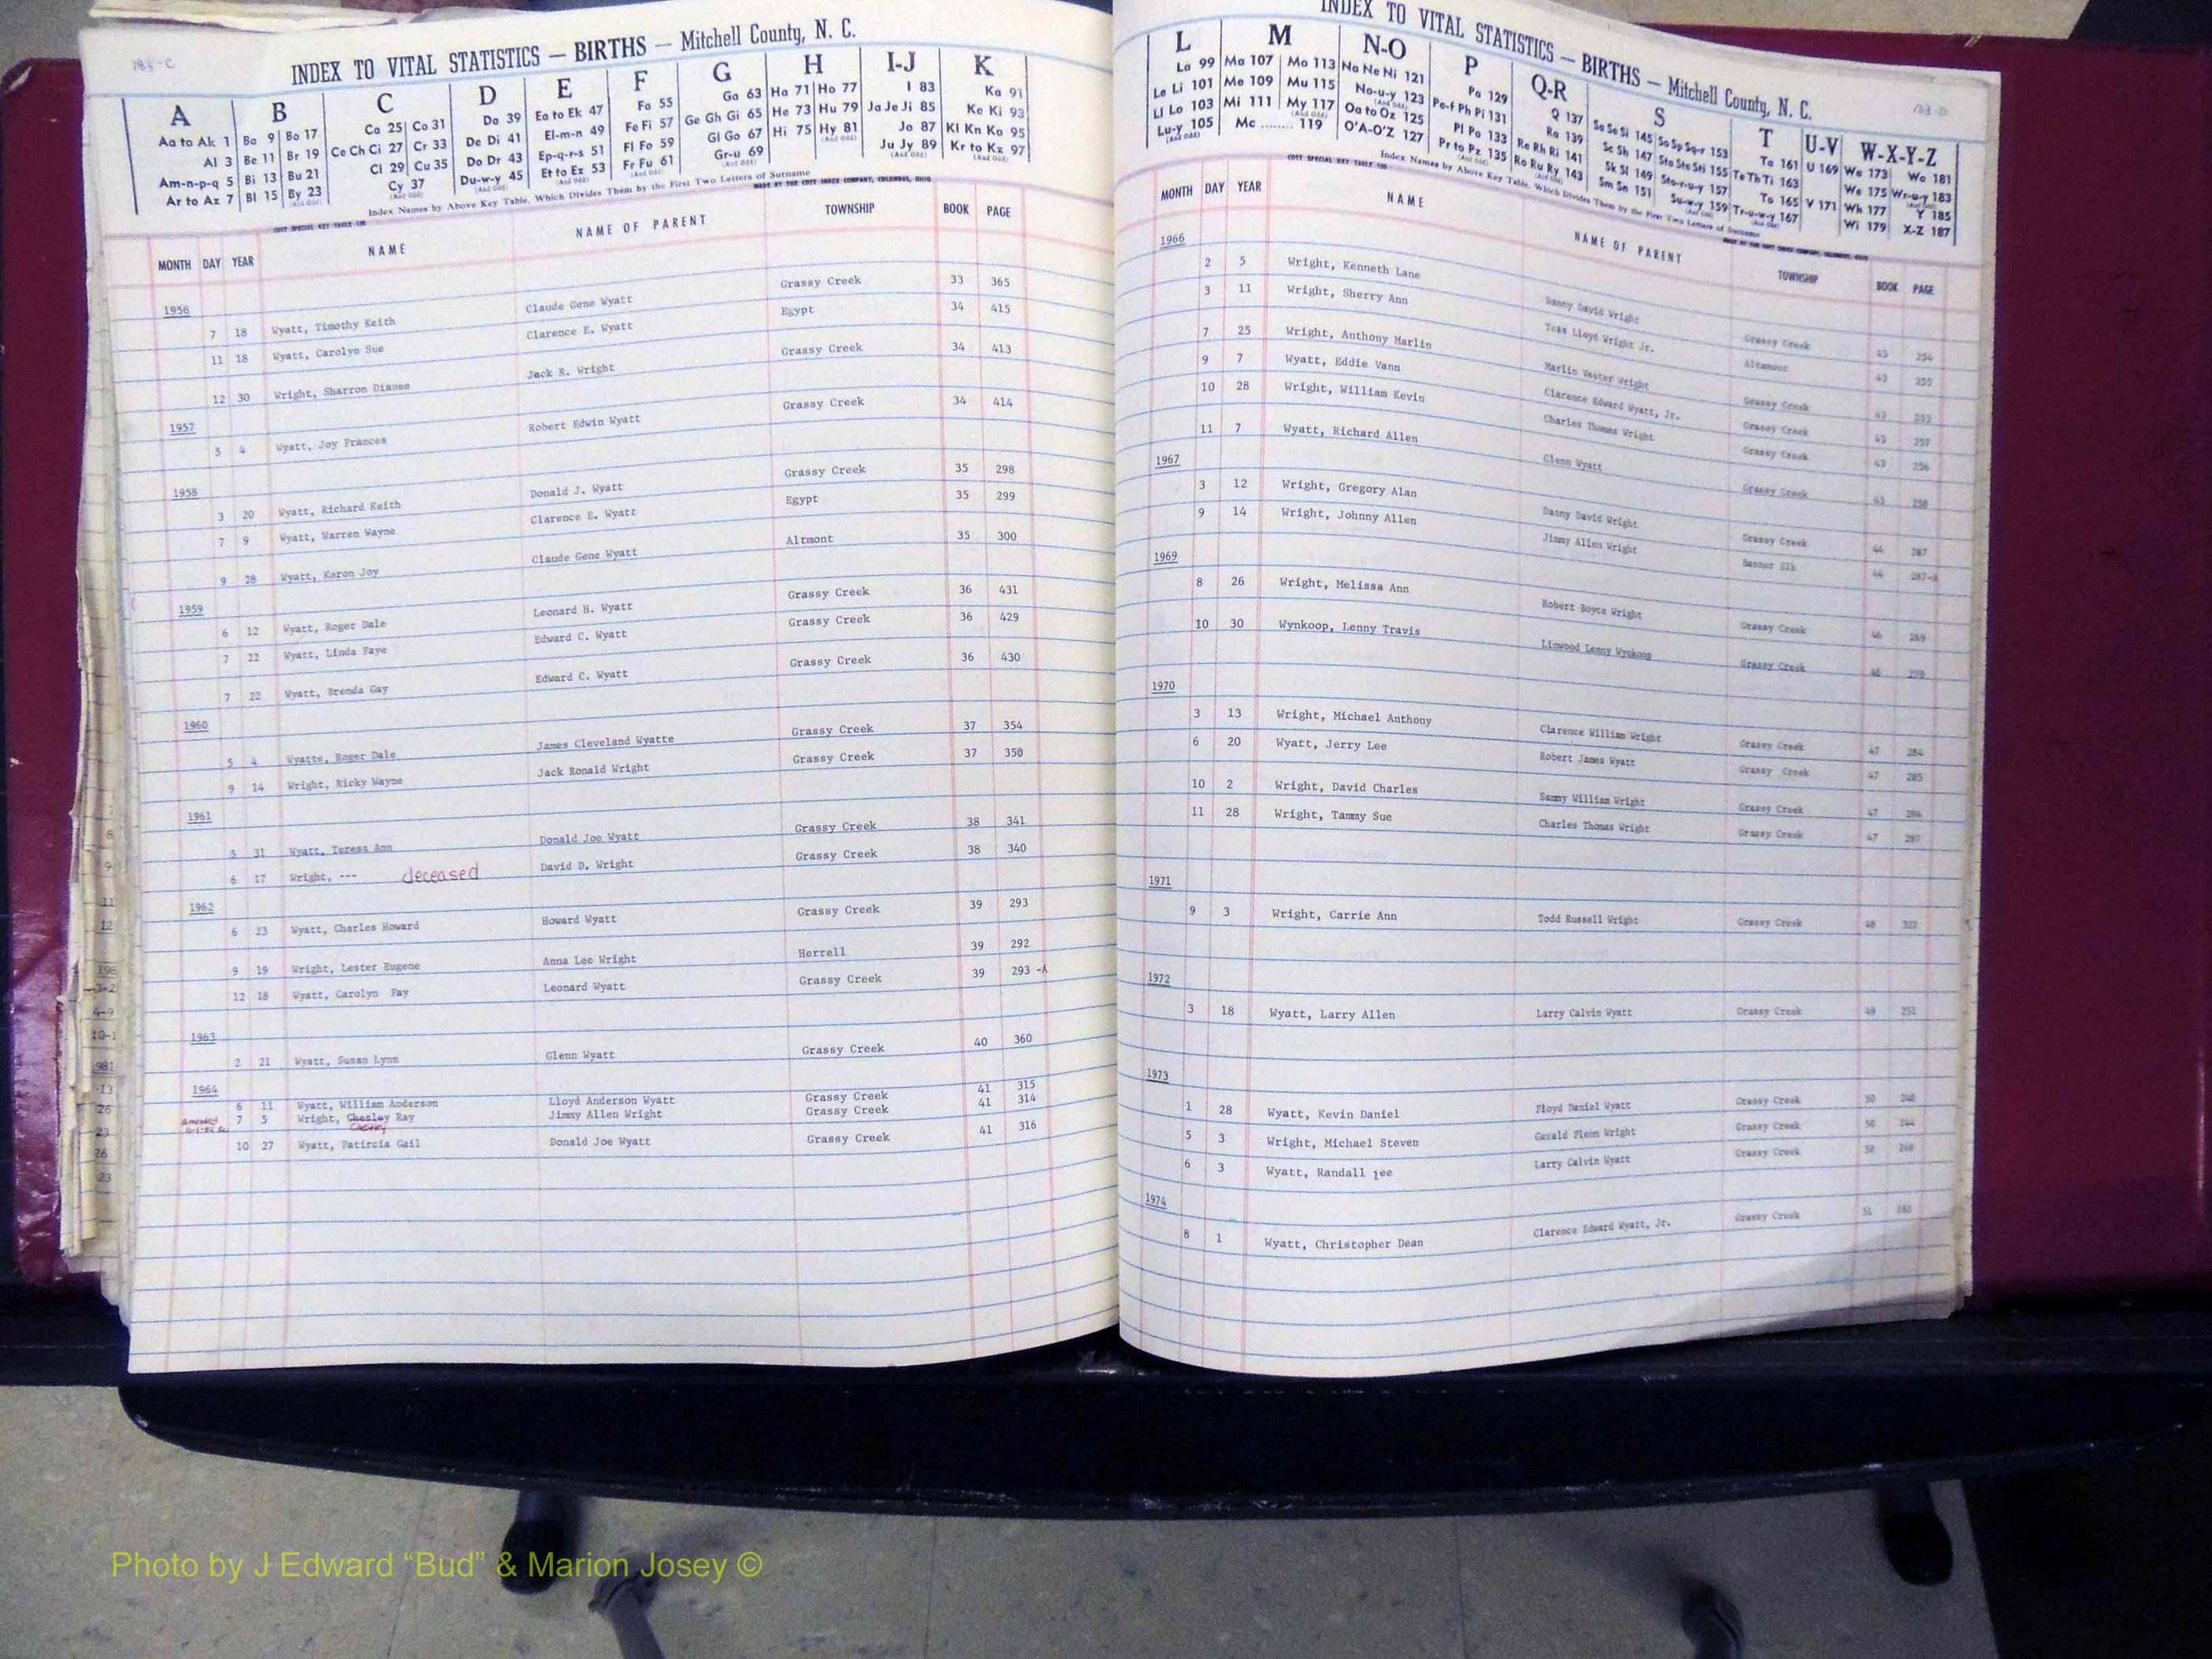 188-C
INDEX TO VITAL STATISTICS — BIRTHS — Mitchell County, N. C.
A B C D E F G H I-J K
Aa to Ak 1 Ba 9 Bo 17 Ca 25 Co 31 Da 39 Ea to Ek 47 Fa 55 Ga 63 Ha 71 Ho 77 I 83 Ka 91
Al 3 Be 11 Br 19 Ce Ch Ci 27 Cr 33 De Di 41 El-m-n 49 Fe Fi 57 Ge Gh Gi 65 He 73 Hu 79 Ja Je Ji 85 Ke Ki 93
Am-n-p-q 5 Bi 13 Bu 21 Cl 29 Cu 35 Do Dr 43 Ep-q-r-s 51 Fl Fo 59 Gl Go 67 Hi 75 Hy 81 Jo 87 Kl Kn Ko 95
Ar to Az 7 Bl 15 By 23 Cy 37 Du-w-y 45 Et to Ez 53 Fr Fu 61 Gr-u 69 Ju Jy 89 Kr to Kz 97
Index Names by Above Key Table, Which Divides Them by the First Two Letters of Surname
COTT SPECIAL KEY TABLE 100 MADE BY THE COTT INDEX COMPANY, COLUMBUS, OHIO
MONTH DAY YEAR NAME NAME OF PARENT TOWNSHIP BOOK PAGE
1956
7 18 Wyatt, Timothy Keith Claude Gene Wyatt Grassy Creek 33 365
11 18 Wyatt, Carolyn Sue Clarence E. Wyatt Egypt 34 415
12 30 Wright, Sharron Dianne Jack R. Wright Grassy Creek 34 413
1957
3 4 Wyatt, Joy Frances Robert Edwin Wyatt Grassy Creek 34 414
1958
3 20 Wyatt, Richard Keith Donald J. Wyatt Grassy Creek 35 298
7 9 Wyatt, Warren Wayne Clarence E. Wyatt Egypt 35 299
9 28 Wyatt, Karon Joy Claude Gene Wyatt Altmont 35 300
1959
6 12 Wyatt, Roger Dale Leonard H. Wyatt Grassy Creek 36 431
7 22 Wyatt, Linda Faye Edward C. Wyatt Grassy Creek 36 429
7 22 Wyatt, Brenda Gay Edward C. Wyatt Grassy Creek 36 430
1960
5 4 Wyatte, Roger Dale James Cleveland Wyatte Grassy Creek 37 354
9 14 Wright, Ricky Wayne Jack Ronald Wright Grassy Creek 37 350
1961
5 31 Wyatt, Teresa Ann Donald Joe Wyatt Grassy Creek 38 341
6 17 Wright, --- deceased David D. Wright Grassy Creek 38 340
1962
6 23 Wyatt, Charles Howard Howard Wyatt Grassy Creek 39 293
9 19 Wright, Lester Eugene Anna Lee Wright Herrell 39 292
12 18 Wyatt, Carolyn Fay Leonard Wyatt Grassy Creek 39 293 -A
1963
2 21 Wyatt, Susan Lynn Glenn Wyatt Grassy Creek 40 360
1964
6 11 Wyatt, William Anderson Lloyd Anderson Wyatt Grassy Creek 41 315
Amended 7 5 Wright, Chesley Ray Jimmy Allen Wright Grassy Creek 41 314
10 27 Wyatt, Patircia Gail Donald Joe Wyatt Grassy Creek 41 316
INDEX TO VITAL STATISTICS — BIRTHS — Mitchell County, N. C.
L M N-O P Q-R S T U-V W-X-Y-Z
La 99 Ma 107 Mo 113 Na Ne Ni 121 Pa 129 Q 137 Sa Se Si 145 So Sp Sq-r 153 Ta 161 U 169 Wa 173 Wo 181
Le Li 101 Me 109 Mu 115 No-u-y 123 Pe-f Ph Pi 131 Ra 139 Sc Sh 147 Sta Ste Sti 155 Te Th Ti 163 We 175 Wr-u-y 183
Ll Lo 103 Mi 111 My 117 Oa to Oz 125 Pl Po 133 Re Rh Ri 141 Sk Sl 149 Sto-r-u-y 157 To 165 V 171 Wh 177 Y 185
Lu-y 105 Mc 119 O'A-O'Z 127 Pr to Pz 135 Ro Ru Ry 143 Sm Sn 151 Su-w-y 159 Tr-u-w-y 167 Wi 179 X-Z 187
COTT SPECIAL KEY TABLE 100 Index Names by Above Key Table, Which Divides Them by the First Two Letters of Surname
MONTH DAY YEAR NAME NAME OF PARENT TOWNSHIP BOOK PAGE
1966
2 5 Wright, Kenneth Lane Danny David Wright Grassy Creek 43 254
3 11 Wright, Sherry Ann Tess Lloyd Wright Jr. Altamont 43 255
7 25 Wright, Anthony Marlin Marlin Vester Wright Grassy Creek 43 253
9 7 Wyatt, Eddie Vann Clarence Edward Wyatt, Jr. Grassy Creek 43 257
10 28 Wright, William Kevin Charles Thomas Wright Grassy Creek 43 256
11 7 Wyatt, Richard Allen Glenn Wyatt Grassy Creek 43 258
1967
3 12 Wright, Gregory Alan Danny David Wright Grassy Creek 44 287
9 14 Wright, Johnny Allen Jimmy Allen Wright Banner Elk 44 287-A
1969
8 26 Wright, Melissa Ann Robert Boyce Wright Grassy Creek 46 269
10 30 Wynkoop, Lenny Travis Linwood Lenny Wynkoop Grassy Creek 46 270
1970
3 13 Wright, Michael Anthony Clarence William Wright Grassy Creek 47 284
6 20 Wyatt, Jerry Lee Robert James Wyatt Grassy Creek 47 285
10 2 Wright, David Charles Sammy William Wright Grassy Creek 47 286
11 28 Wright, Tammy Sue Charles Thomas Wright Grassy Creek 47 287
1971
9 3 Wright, Carrie Ann Todd Russell Wright Grassy Creek 48
1972
3 18 Wyatt, Larry Allen Larry Calvin Wyatt Grassy Creek 49
1973
1 28 Wyatt, Kevin Daniel Floyd Daniel Wyatt Grassy Creek 50
5 3 Wright, Michael Steven Gerald Flenn Wright Grassy Creek 50
6 3 Wyatt, Randall lee Larry Calvin Wyatt Grassy Creek 50
1974
8 1 Wyatt, Christopher Dean Clarence Edward Wyatt, Jr. Grassy Creek 51
Photo by J Edward “Bud” & Marion Josey ©